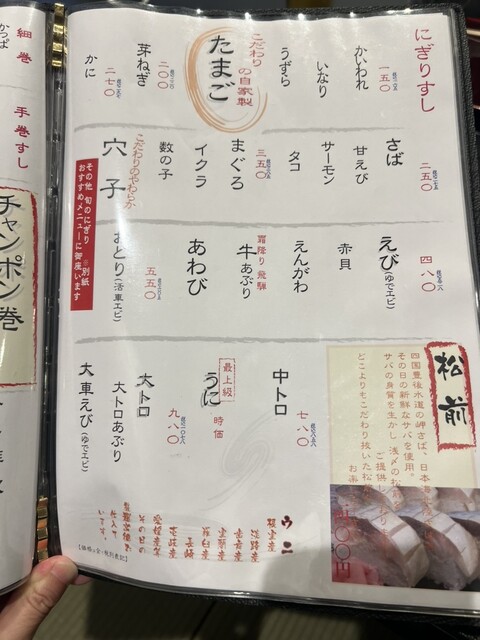 にぎりすし
一五〇
かいわれ
いなり
うずら
こだわりの自家製
たまご
二〇〇
芽ねぎ
二七〇
かに
二五〇
さば
甘えび
サーモン
タコ
三五〇
まぐろ
イクラ
数の子
こだわりのやわらか
穴子
その他 旬のにぎり ※別紙
おすすめメニューに御座います
四八〇
えび(ゆでエビ)
赤貝
えんがわ
霜降り飛騨
牛あぶり
あわび
五五〇
おどり(活車エビ)
七八〇
中トロ
最上級
うに
時価
九八〇
大トロ
大トロあぶり
大車えび(ゆでエビ)
松前
四国豊後水道の岬さば、日本
その日の新鮮なサバを使用。
サバの身質を生かし、浅〆の松前
ご提供し
どこよりもこだわり抜いた松
ウニ
淡路産
長崎
壱岐産
愛媛産等
その日の
仕入れで
います。
細巻
かっぱ
手巻すし
チャンポン巻